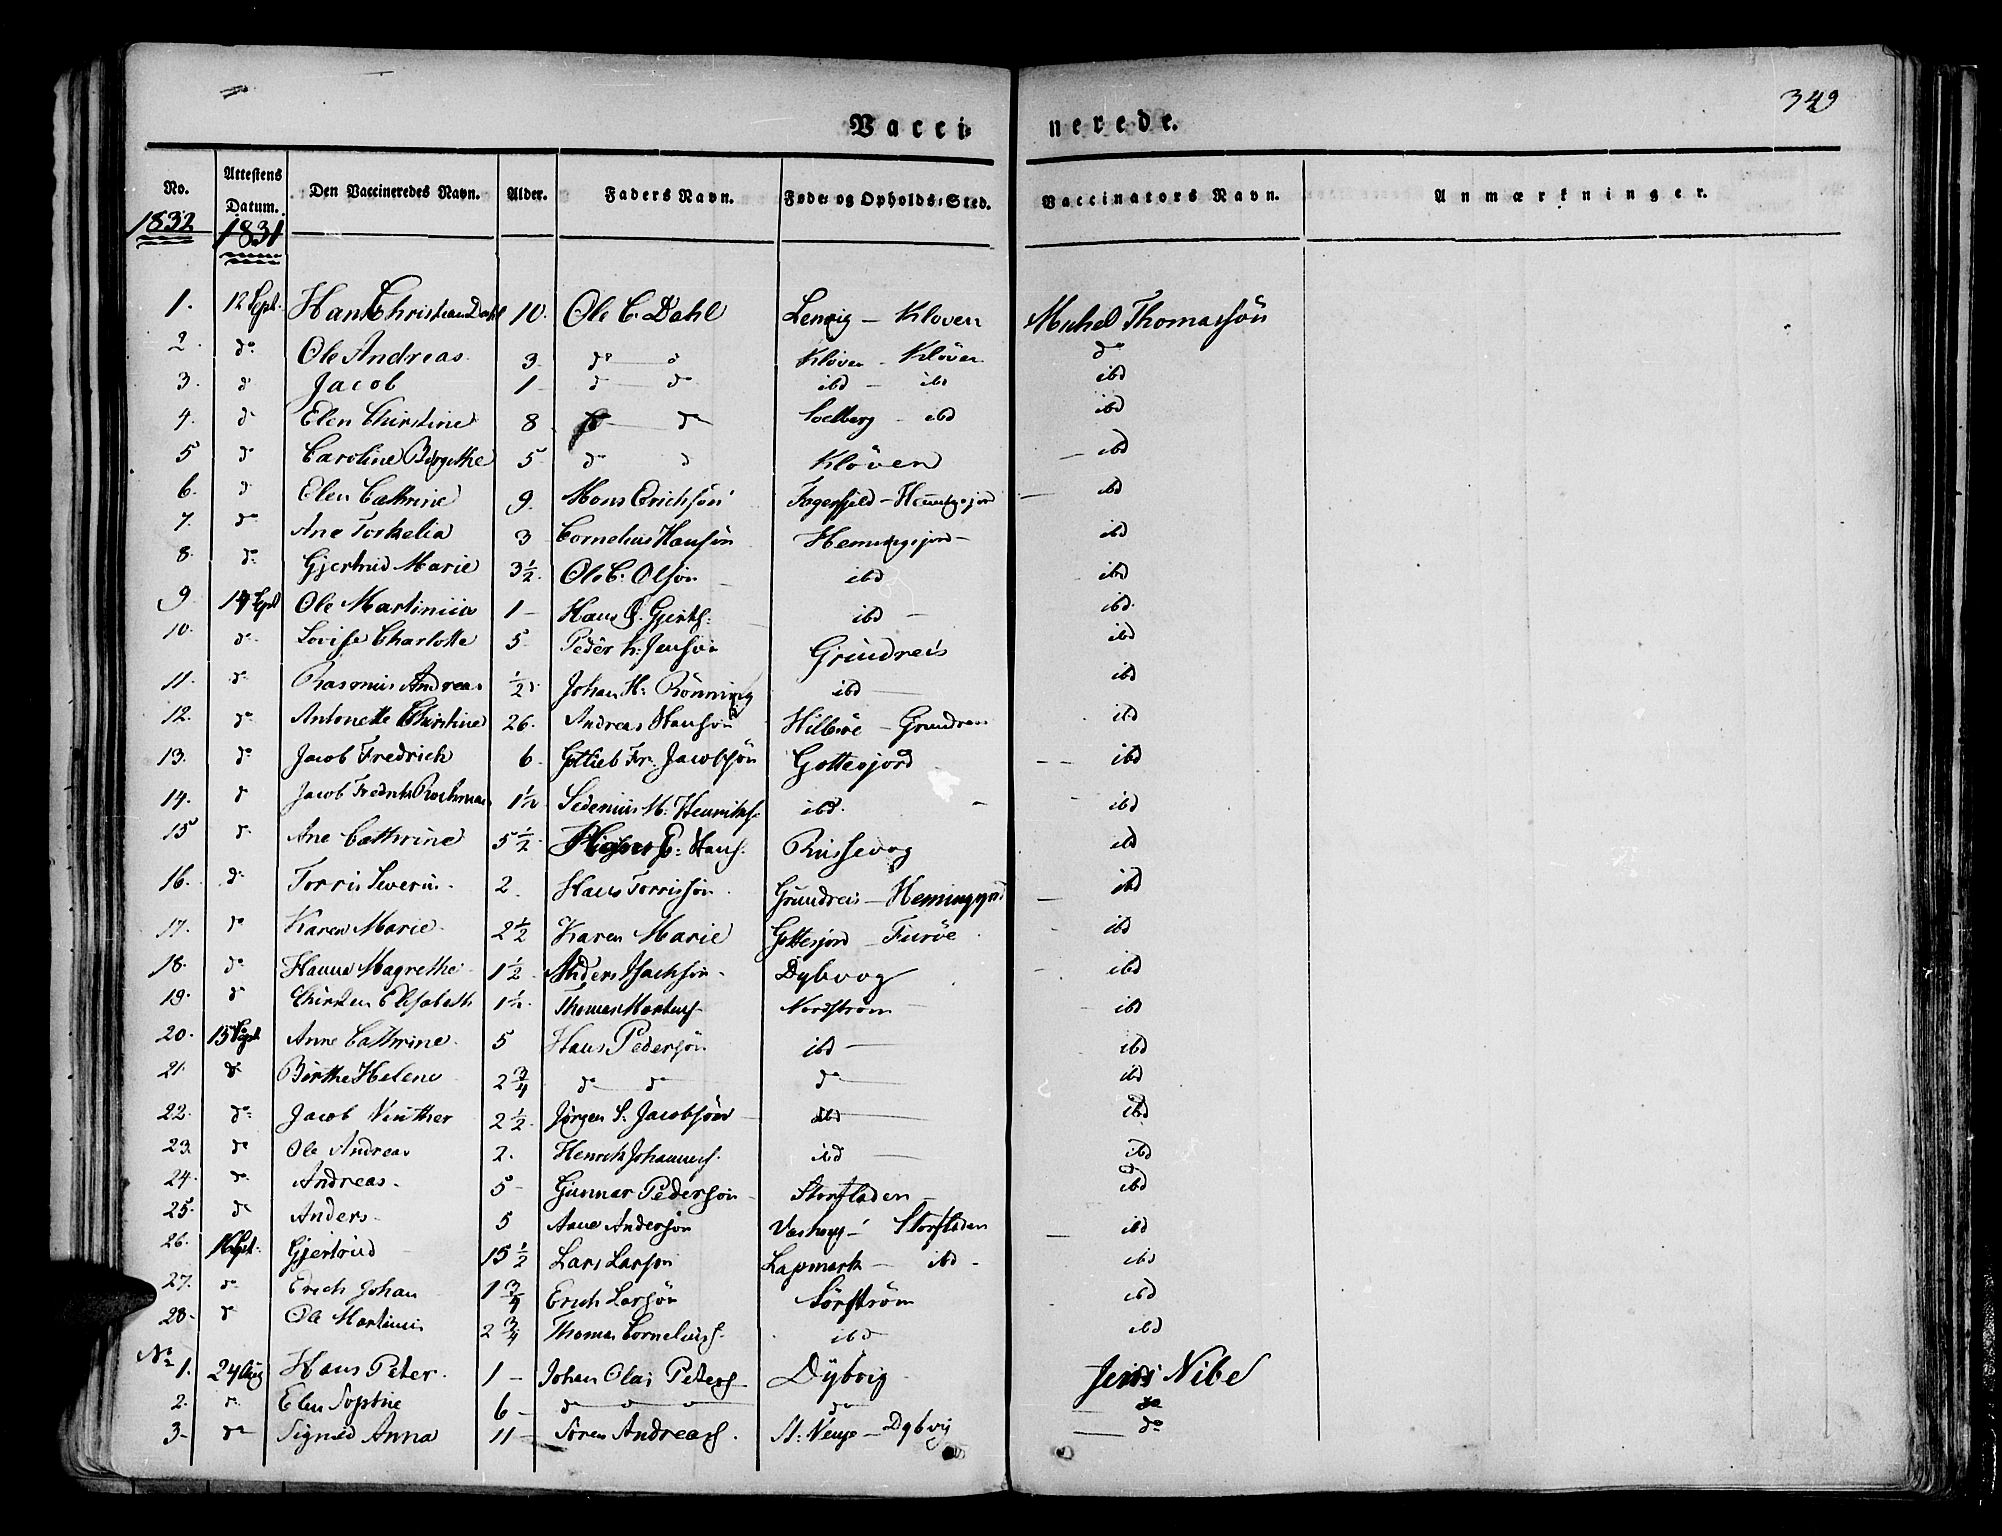 349
Vacci-nerede.
No. Attestens Datum. Den Vaccineredes Navn. Alder. Faders Navn. Føde- og Opholds-Sted. Vaccinators Navn. Anmærkninger.
1832 1831
1. 12 Sept. Hans Christian Dahl 10. Ole C. Dahl Lenvig - Kloven Michel Thomassön
2. do Ole Andreas 3. do Klöven - Klöven do
3. do Jacob 1 - do do ibd - ibd ibd
4. do Elen Christine 8 do do Soelberg - ibd ibd
5 do Caroline Birgithe 5 do d Klöven - ibd
6. do Elen Cathrine 9. Mons Erichsön Fagerfjeld - - ibd
7. do Ane Torkelia 3 Cornelius Hansön ibd
8. do Gjertrud Marie 3½. Ole C. Olsön ibd ibd
9 14 Sept Ole 1 - Hans Gjerts: ibd - ibd.
10. do Lovise Charlotte 5 Peder h: Jensön Grundreis ibd
11. do Rasmus Andreas ½ Johan H: Rönning ibd ibd
12. do Antonette Christine 26. Andreas Hansön Hilbøe - Grundreis ibd
13. do Jacob Fredrich 6 Gotlieb Fr. Jacobsön Gottesjord ibd
14. d Jacob Fredrik 1½ Sedenius M. Henriks. ibd. ibd
15 do Ane Cathrine 5½ Hans. Russevog ibd
16. do Torris Severin. 2. Hans Torrissön. Grundreis - ibd
17. do Karen Marie 2½ Karen Marie Gottesjord - Furöe ibd
18. do Hanna Magrethe 1½ Anders Isachsön Dybvog ibd
19. do Christen Elisabeth 1½. Thomas Mortens. Nordström ibd
20. 15 Sept Anne Cathrine 5 Hans Pedersön ibd - ibd
21. do Birthe Helene 2¾ do do do ibd
22. do Jacob Vinther 2½ Jørgen S: Jacobsön ibd ibd
23. do Ole Andreas 2. Henrik Johannes. ibd ibd
24. do Andreas. 5 - Gunnar Pedersön Storfladen ibd
25. do Anders. 5 Aane Andersön - Storfladen ibd
26. 16 Sept. Gjertrud 15½ Lars Larsön Lapmark - ibd - ibd
27. do Erich Johan 1¾ Erich Larsön Sörström ibd
28. do Ole Martinus 2¾ Thomas Cornelius. ibd ibd
No 1. 24 Aug Hans Peter. 1 - Johan Olai Peters. Dÿbvig Jens Nibe
2. do Elen Sophie 6 - do do do
3 - do Signed Anna 11 - Sören Andreas. - Dybvig do